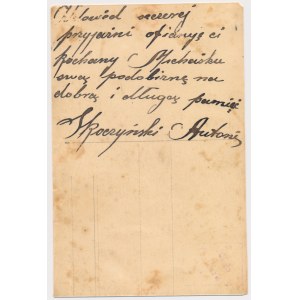 Na dowód szczerej
przyjaźni ofiaruję ci
kochany Michasiu
swą podobiznę na
dobrą i długą pamięć
Skoczyński Antoni